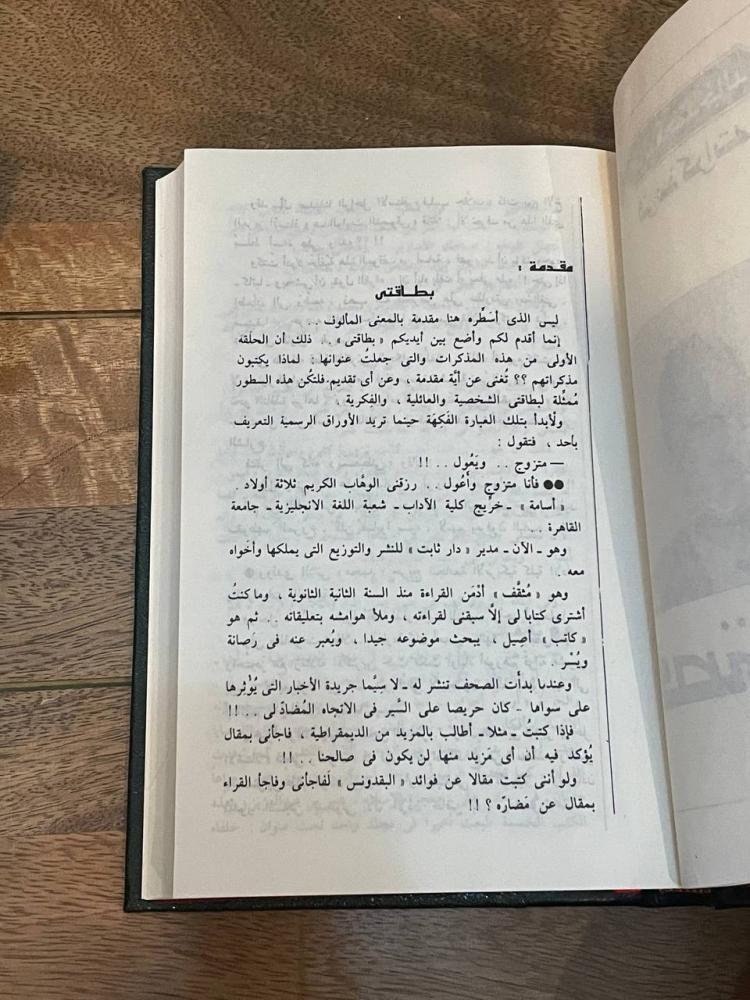 مقدمة :
بطاقتى
ليس الذى أسَطِّره هنا مقدمة بالمعنى المألوف . .
إنما أقدم لكم وأضع بين أيديكم « بطاقتى » . . ذلك أن الحلقه
الأولى من هذه المذكرات والتى جعلتُ عنوانها : لماذا يكتبون
مذكراتهم ؟؟ تُغنى عن أيَّة مقدمة ، وعن أى تقديم . فلتكُن هذه السطور
مُمثِّلة لبطاقتى الشخصية والعائلية ، والفكرية ،
ولأبدأ بتلك العبارة الفَكِهَة حينما تريد الأوراق الرسمية التعريف
بأحد ، فتقول :
— متزوج . . ويَعُول . . !!
●● فأنا متزوج وأعُول . . رزقنى الوهَّاب الكريم ثلاثة أولاد .
« أسامة » ـ خرِّيج كلية الآداب ـ شعبة اللغة الانجليزية ـ جامعة
القاهرة . .
وهو ـ الآن ـ مدير « دار ثابت » للنشر والتوزيع التى يملكها وأخواه
معه .
وهو « مُثقَّف » أدْمَن القراءة منذ السنة الثانية الثانوية ، وما كنتُ
أشترى كتابا لى إلاَّ سبقنى لقراءته ، وملأ هوامشه بتعليقاته . . ثم هو
« كاتب » أصيل ، يبحث موضوعه جيدا ، ويُعبر عنه فى رَصانة
ويُسْر .
وعندما بدأت الصحف تنشر له ـ لا سِيَّما جريدة الأخبار التى يُؤْثِرها
على سواها ـ كان حريصا على السَّير فى الاتجاه المُضادّ لى . . !!
فإذا كتبتُ ـ مثلا ـ أطالب بالمزيد من الديمقراطية ، فاجأنى بمقال
يُؤكد فيه أن أى مَزيد منها لن يكون فى صالحنا . . !!
ولو أننى كتبت مقالا عن فوائد « البقدونس » لَفاجأنى وفاجأ القراء
بمقال عن مَضارِّه ؟ !!